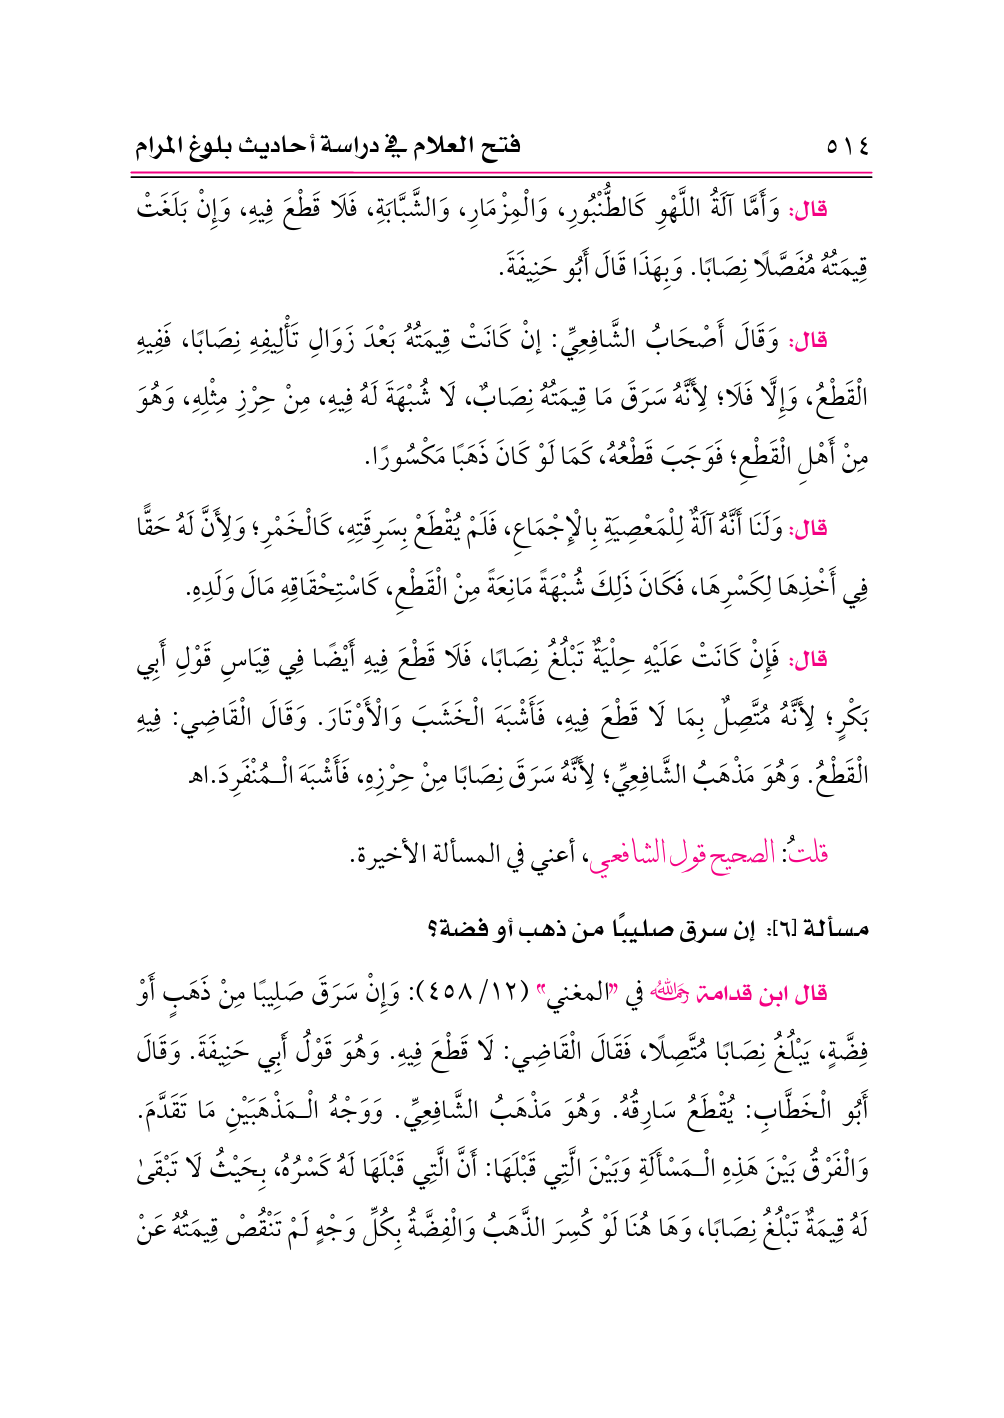 ٥١٤ فتح العلام في دراسة أحاديث بلوغ المرام
قال: وَأَمَّا آلَةُ اللَّهْوِ كَالطُّنْبُورِ، وَالْمِزْمَارِ، وَالشَّبَّابَةِ، فَلَا قَطْعَ فِيهِ، وَإِنْ بَلَغَتْ
قِيمَتُهُ مُفَصَّلًا نِصَابًا. وَبِهَذَا قَالَ أَبُو حَنِيفَةَ.
قال: وَقَالَ أَصْحَابُ الشَّافِعِيِّ: إنْ كَانَتْ قِيمَتُهُ بَعْدَ زَوَالِ تَأْلِيفِهِ نِصَابًا، فَفِيهِ
الْقَطْعُ، وَإِلَّا فَلَا؛ لِأَنَّهُ سَرَقَ مَا قِيمَتُهُ نِصَابٌ، لَا شُبْهَةَ لَهُ فِيهِ، مِنْ حِرْزِ مِثْلِهِ، وَهُوَ
مِنْ أَهْلِ الْقَطْعِ؛ فَوَجَبَ قَطْعُهُ، كَمَا لَوْ كَانَ ذَهَبًا مَكْسُورًا.
قال: وَلَنَا أَنَّهُ آلَةٌ لِلْمَعْصِيَةِ بِالْإِجْمَاعِ، فَلَمْ يُقْطَعْ بِسَرِقَتِهِ، كَالْخَمْرِ؛ وَلِأَنَّ لَهُ حَقًّا
فِي أَخْذِهَا لِكَسْرِهَا، فَكَانَ ذَلِكَ شُبْهَةً مَانِعَةً مِنْ الْقَطْعِ، كَاسْتِحْقَاقِهِ مَالَ وَلَدِهِ.
قال: فَإِنْ كَانَتْ عَلَيْهِ حِلْيَةٌ تَبْلُغُ نِصَابًا، فَلَا قَطْعَ فِيهِ أَيْضًا فِي قِيَاسِ قَوْلِ أَبِي
بَكْرٍ؛ لِأَنَّهُ مُتَّصِلٌ بِمَا لَا قَطْعَ فِيهِ، فَأَشْبَهَ الْخَشَبَ وَالْأَوْتَارَ. وَقَالَ الْقَاضِي: فِيهِ
الْقَطْعُ. وَهُوَ مَذْهَبُ الشَّافِعِيِّ؛ لِأَنَّهُ سَرَقَ نِصَابًا مِنْ حِرْزِهِ، فَأَشْبَهَ الْـمُنْفَرِدَ.اهـ
قلتُ: الصحيح قول الشافعي، أعني في المسألة الأخيرة.
مسألة [٦]: إن سرق صليبًا من ذهب أو فضة؟
قال ابن قدامة رحمه الله في "المغني" (١٢/ ٤٥٨): وَإِنْ سَرَقَ صَلِيبًا مِنْ ذَهَبٍ أَوْ
فِضَّةٍ، يَبْلُغُ نِصَابًا مُتَّصِلًا، فَقَالَ الْقَاضِي: لَا قَطْعَ فِيهِ. وَهُوَ قَوْلُ أَبِي حَنِيفَةَ. وَقَالَ
أَبُو الْخَطَّابِ: يُقْطَعُ سَارِقُهُ. وَهُوَ مَذْهَبُ الشَّافِعِيِّ. وَوَجْهُ الْـمَذْهَبَيْنِ مَا تَقَدَّمَ.
وَالْفَرْقُ بَيْنَ هَذِهِ الْـمَسْأَلَةِ وَبَيْنَ الَّتِي قَبْلَهَا: أَنَّ الَّتِي قَبْلَهَا لَهُ كَسْرُهُ، بِحَيْثُ لَا تَبْقَىٰ
لَهُ قِيمَةٌ تَبْلُغُ نِصَابًا، وَهَا هُنَا لَوْ كُسِرَ الذَّهَبُ وَالْفِضَّةُ بِكُلِّ وَجْهٍ لَمْ تَنْقُصْ قِيمَتُهُ عَنْ